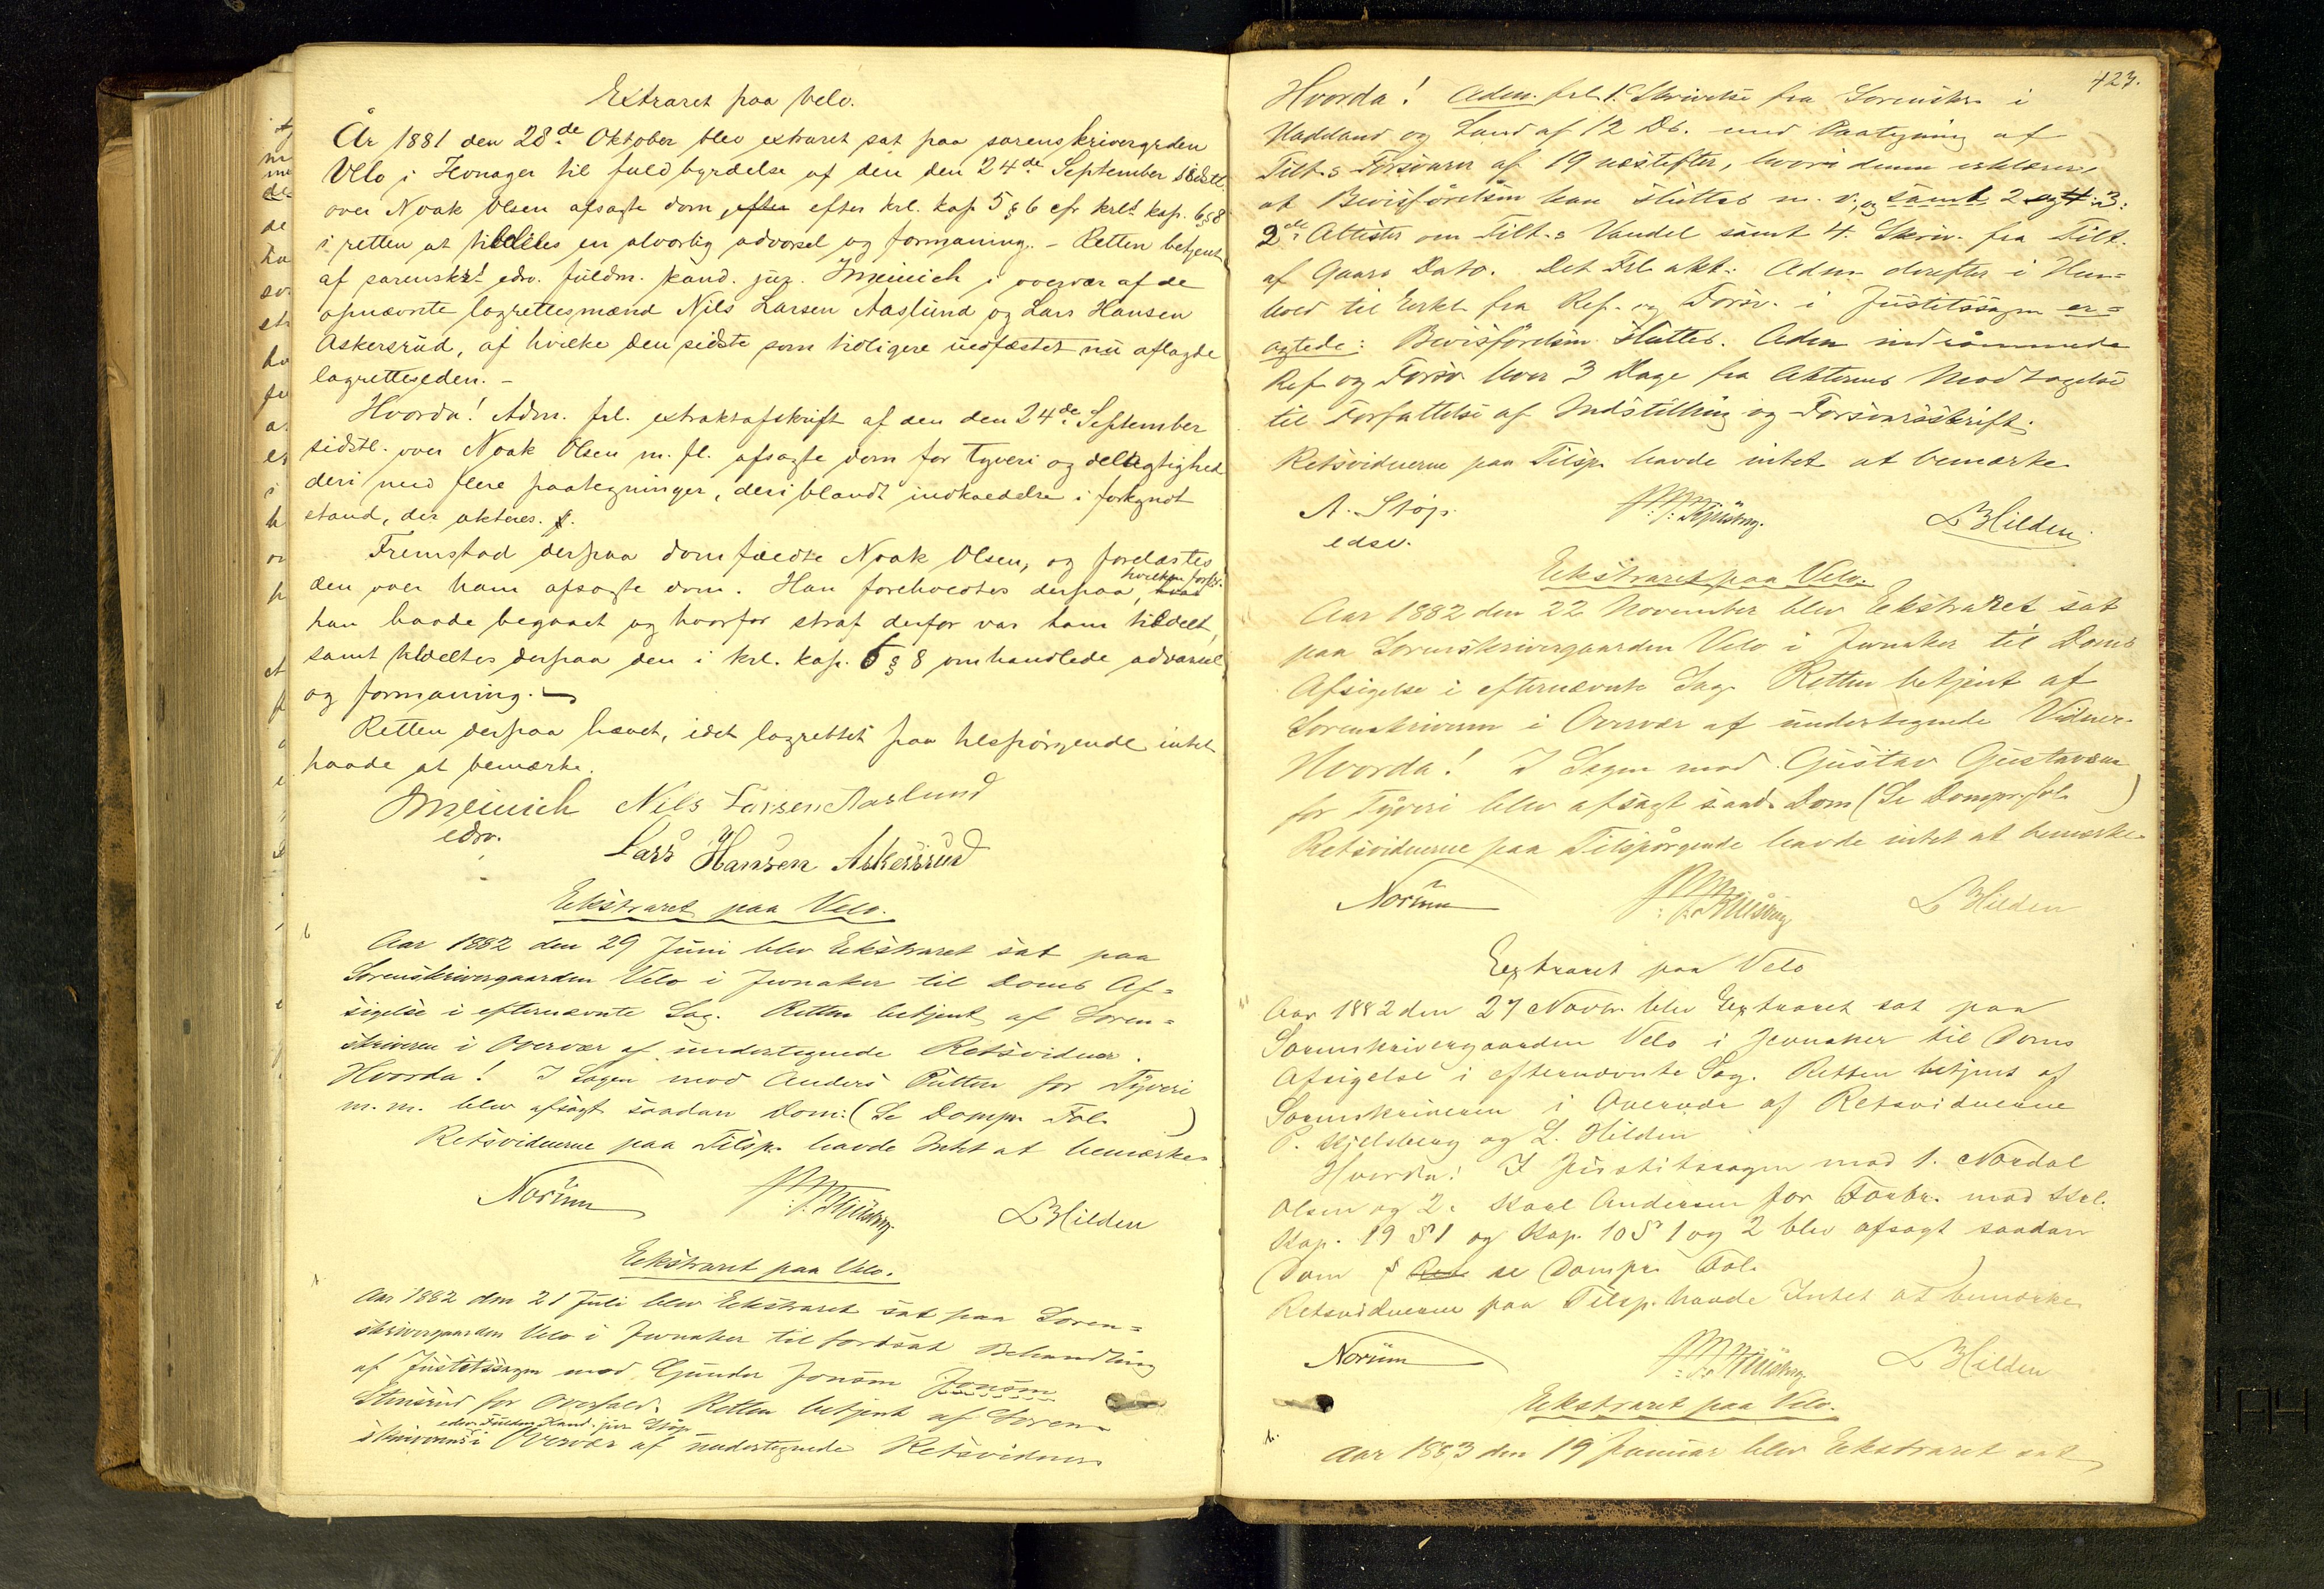 Extraret paa Velo.
År 1881 den 28de Oktober blev extraret sat paa sorenskrivergrden
Velo i Jevnager til fuldbyrdelse af den den 24de September sidstl.
over Noak Olsen afsagte dom, efter efter krl. kap 5 § 6 cfr krls kap. 6 § 8
i retten at tildeles en alvorlig advarsel og formaning. – Retten betjent
af sorenskr.s edsv. fuldm. kand. jur. Meinich i overvær af de
opnævnte lagrettesmænd Nils Larsen Aaslund og Lars Hansen
Askersrud, af hvilke den sidste som tidligere uedfæstet nu aflagde
lagretteseden. –
Hvorda! Adm. frl. extraktafskrift af den den 24de September
sidstl. over Noak Olsen m. fl. afsagte dom for tyveri og delagtighed
deri med flere paategninger, deriblandt indkaldelse i forkyndt
stand, der akteres.
Fremstod derpaa domfældte Noak Olsen, og forelæstes
den over ham afsagte dom. Han foreholdtes derpaa, hvad hvilken forbr.
han havde begaaet og hvorfor straf derfor var ham tildelt,
samt tildeltes derpaa den i krl. kap. 6 § 8 omhandlede advarsel
og formaning. –
Retten derpaa hævet, idet lagrettet paa tilspörgende intet
havde at bemærke.
Meinich Nils Larsen Aaslund
edsv.
Lars Hansen Askersrud
Ekstraret paa Velo.
Aar 1882 den 29 Juni blev Ekstraret sat paa
Sorenskrivergaarden Velo i Jevnaker til Doms Af=
sigelse i efternævnte Sag. Retten betjent af Soren=
skriveren i Overvær af undertegnede Retsvidner.
Hvorda! I Sagen mod Anders Putten for Tyveri
m.m. blev afsagt saadan Dom: (Se Dompr. Fol. )
Retsvidnerne paa Tilsp. havde Intet at bemærke
Norum Kjelsberg. L Hilden
Ekstraret paa Velo.
Aar 1882 den 21 Juli blev Ekstraret sat paa Soren=
skrivergaarden Velo i Jevnaker til fortsat Behandling
af Justitssagen mod Gunder Jonsen Jonsen
Stensrud for Overfald. Retten betjent af Soren
skriverens edsv. Fuldm. Kand. jur Støp
i Overvær af undertegnede Retsvidner
423.
Hvorda! Adm. frl. 1. Skrivelse fra Sorenskr. i
Hadeland og Land af 12 Ds. med Paategning af
Tilt.s Forsvarer af 19 næstefter, hvori denne erklærer,
at Bevisförelsen kan sluttes m. v., og samt 2 og 3:
2de Attester om Tilt.s Vandel samt 4. Skriv. fra Tilt.
af Gaars Dato. Det Frl. akt: Adm. derefter i Hen=
hold til Erkl. fra Ref. og Forsv. i Justitssagen er=
agtede: Bevisförelsen sluttes. Adm indrömmede
Ref. og Forsv. hver 3 Dage fra Akternes Modtagelse
til Forfattelse af Indstilling og Forsvarsskrift.
Retsvidnerne paa Tilsp. havde intet at bemærke
A. Støp. Kjelsberg. L Hilden
edsv.
Ekstraret paa Velo.
Aar 1882 den 22 November blev Ekstraret sat
paa Sorenskrivergaarden Velo i Jevnaker til Doms
Afsigelse i efternævnte Sag. Retten betjent af
Sorenskriveren i Overvær af undertegnede Vidner.
Hvorda! I Sagen mod Gustav Gustavsen
for Tyveri blev afsagt saad. Dom (Se Dompr. fol. )
Retsvidnerne paa Tilspörgende havde intet at bemærke.
Norum Kjelsberg L Hilden
Extraret paa Velo
Aar 1882 den 27 Novbr. blev Extraret sat paa
Sorenskrivergaarden Velo i Jevnaker til Doms
Afsigelse i efternævnte Sag. Retten betjent af
Sorenskriveren i Overvær af Retsvidnerne
P. Kjelsberg og L. Hilden
Hvorda! I Justitssagen mod 1. Nordal
Olsen og 2. Karl Andersen for Forbr. mod Krl.
Kap. 19 § 1 og Kap. 10 § 1 og 2 blev afsagt saadan
Dom se Dompr. Fol. )
Retsvidnerne paa Tilsp. havde Intet at bemærke
Norum Kjelsberg L Hilden
Ekstraret paa Velo.
Aar 1883 den 19 Januar blev Ekstraret sat